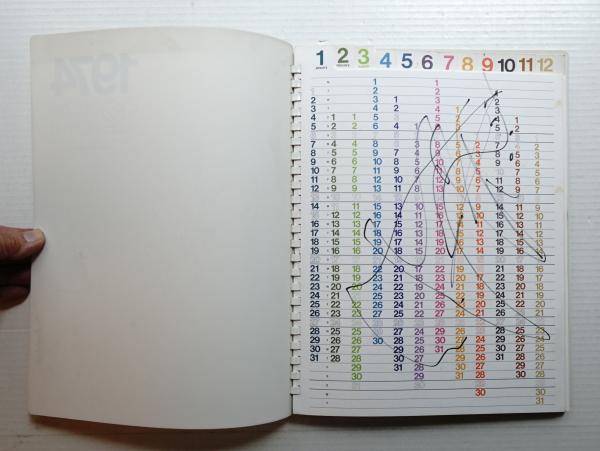 1974
1 2 3 4 5 6 7 8 9 10 11 12
1 1
1 2 2 1
2 3 1 3 2
3 4 2 4 1 3
4 1 1 5 3 5 2 4 1
5 2 2 6 4 1 6 3 5 2
7 4 4 8 6 3 8 5 2 7 4 2
8 5 5 9 7 4 9 6 3 8 5 3
9 6 6 10 8 5 10 7 4 9 6 4
10 7 7 11 9 6 11 8 5 10 7 5
11 8 8 12 10 7 12 9 6 11 8 6
12 9 9 13 11 8 13 10 7 12 9 7
14 11 11 15 13 10 15 12 9 14 11 9
15 12 12 16 14 11 16 13 10 15 12 10
16 13 13 17 15 12 17 14 11 16 13 11
17 14 14 18 16 13 18 15 12 17 14 12
18 15 15 19 17 14 19 16 13 18 15 13
19 16 16 20 18 15 20 17 14 19 16 14
21 18 18 22 20 17 22 19 16 21 18 16
22 19 19 23 21 18 23 20 17 22 19 17
23 20 20 24 22 19 24 21 18 23 20 18
24 21 21 25 23 20 25 22 19 24 21 19
25 22 22 26 24 21 26 23 20 25 22 20
26 23 23 27 25 22 27 24 21 26 23 21
28 25 25 29 27 24 29 26 23 28 25 23
29 26 26 30 28 25 30 27 24 29 26 24
30 27 27 29 26 31 28 25 30 27 25
31 28 28 30 27 29 26 31 28 26
29 31 28 30 27 29 27
30 29 31 28 30 28
30
31